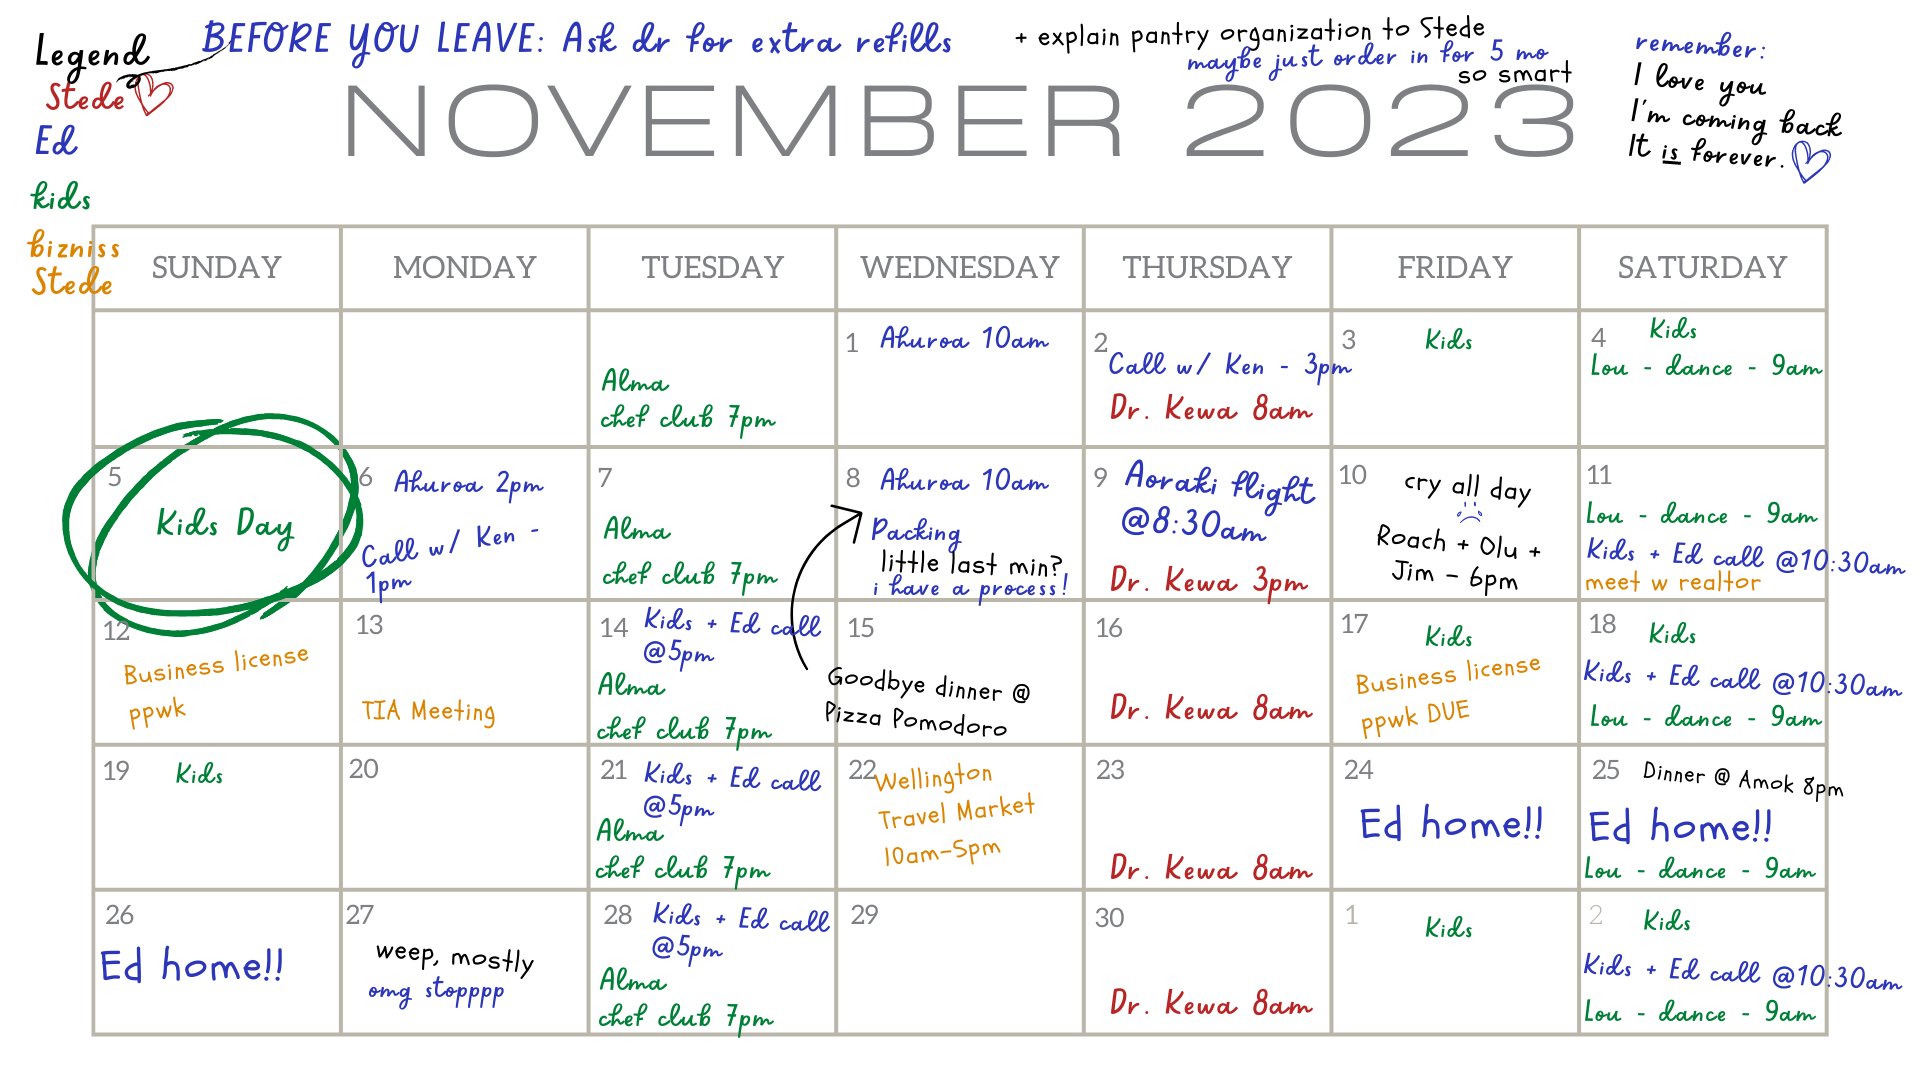 Legend
Stede
Ed
kids
bizniss
Stede
BEFORE YOU LEAVE: Ask dr for extra refills
+ explain pantry organization to Stede
maybe just order in for 5 mo
so smart
remember:
I love you
I'm coming back
It is forever.
NOVEMBER 2023
SUNDAY MONDAY TUESDAY WEDNESDAY THURSDAY FRIDAY SATURDAY
Alma
chef club 7pm
1
Ahuroa 10am
2
Call w/ Ken - 3pm
Dr. Kewa 8am
3
Kids
4
Kids
Lou - dance - 9am
5
Kids Day
6
Ahuroa 2pm
Call w/ Ken -
1pm
7
Alma
chef club 7pm
8
Ahuroa 10am
Packing
little last min?
i have a process!
9
Aoraki flight
@8:30am
Dr. Kewa 3pm
10
cry all day
Roach + Olu +
Jim - 6pm
11
Lou - dance - 9am
Kids + Ed call @10:30am
meet w realtor
12
Business license
ppwk
13
TIA Meeting
14
Kids + Ed call
@5pm
Alma
chef club 7pm
15
Goodbye dinner @
Pizza Pomodoro
16
Dr. Kewa 8am
17
Kids
Business license
ppwk DUE
18
Kids
Kids + Ed call @10:30am
Lou - dance - 9am
19
Kids
20
21
Kids + Ed call
@5pm
Alma
chef club 7pm
22
Wellington
Travel Market
10am-5pm
23
Dr. Kewa 8am
24
Ed home!!
25
Dinner @ Amok 8pm
Ed home!!
Lou - dance - 9am
26
Ed home!!
27
weep, mostly
omg stopppp
28
Kids + Ed call
@5pm
Alma
chef club 7pm
29
30
Dr. Kewa 8am
1
Kids
2
Kids
Kids + Ed call @10:30am
Lou - dance - 9am